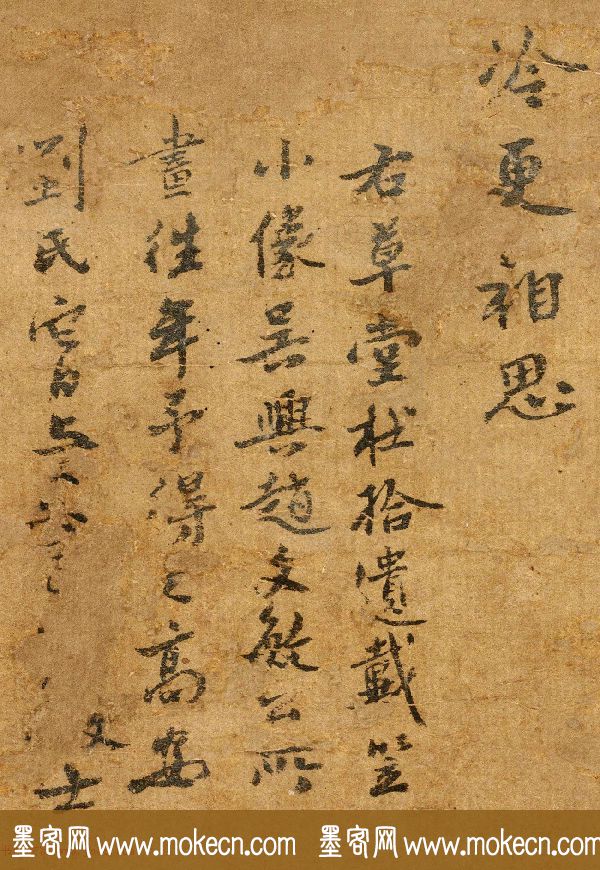 冷更相思
右草堂杜拾遺戴笠
小像吳興趙文敏公所
畫往年予得之高安
劉氏
文士
墨客网 www.mokecn.com 墨客网 www.mokecn.com